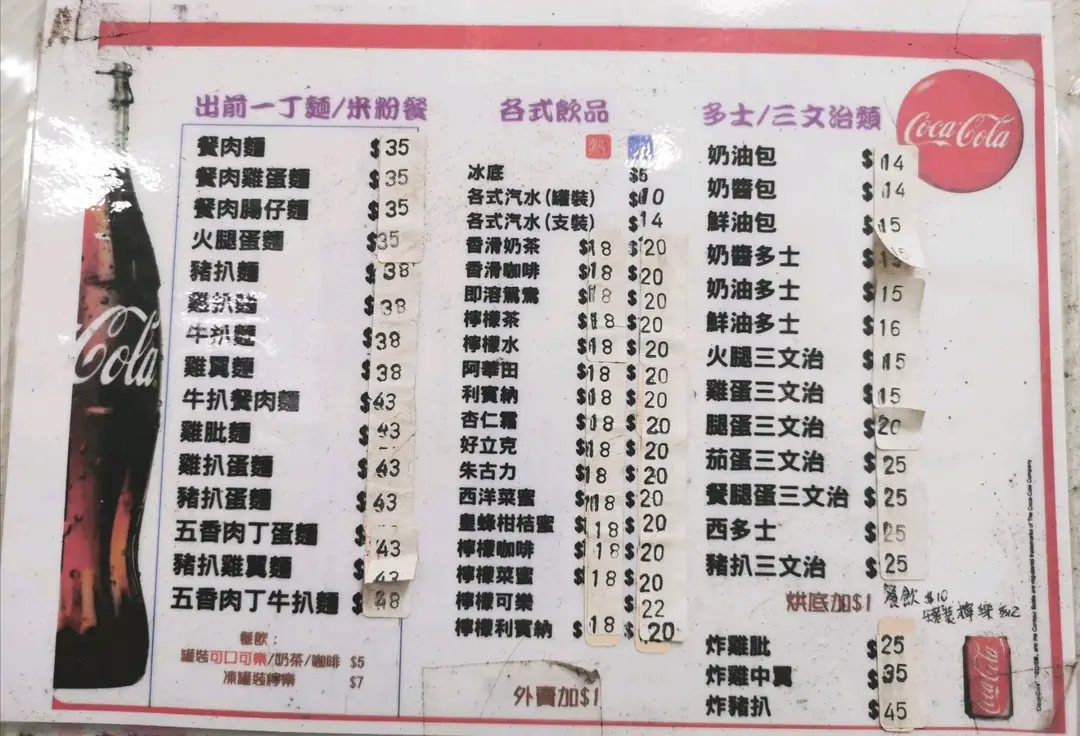 出前一丁麵/米粉餐
餐肉麵 $35
餐肉雞蛋麵 $35
餐肉腸仔麵 $35
火腿蛋麵 $35
豬扒麵 $38
雞扒麵 $38
牛扒麵 $38
雞翼麵 $38
牛扒餐肉麵 $43
雞肶麵 $43
雞扒蛋麵 $43
豬扒蛋麵 $43
五香肉丁蛋麵 $43
豬扒雞翼麵 $43
五香肉丁牛扒麵 $48
餐飲：
罐裝可口可樂/奶茶/咖啡 $5
凍罐裝檸樂 $7
各式飲品
熱
冰底 $5
各式汽水(罐裝) $10
各式汽水(支裝) $14
香滑奶茶 $18 $20
香滑咖啡 $18 $20
即溶鴛鴦 $18 $20
檸檬茶 $18 $20
檸檬水 $18 $20
阿華田 $18 $20
利賓納 $18 $20
杏仁霜 $18 $20
好立克 $18 $20
朱古力 $18 $20
西洋菜蜜 $18 $20
皇蜂柑桔蜜 $18 $20
檸檬咖啡 $18 $20
檸檬菜蜜 $18 $20
檸檬可樂 $22
檸檬利賓納 $18 $20
外賣加$1
多士/三文治類
奶油包 $14
奶醬包 $14
鮮油包 $15
奶醬多士 $15
奶油多士 $15
鮮油多士 $16
火腿三文治 $15
雞蛋三文治 $15
腿蛋三文治 $20
茄蛋三文治 $25
餐腿蛋三文治 $25
西多士 $25
豬扒三文治 $25
烘底加$1
餐飲 $10
罐裝檸樂 $12
炸雞肶 $25
炸雞中翼 $35
炸豬扒 $45
Coca-Cola
Cola
Coca-Cola